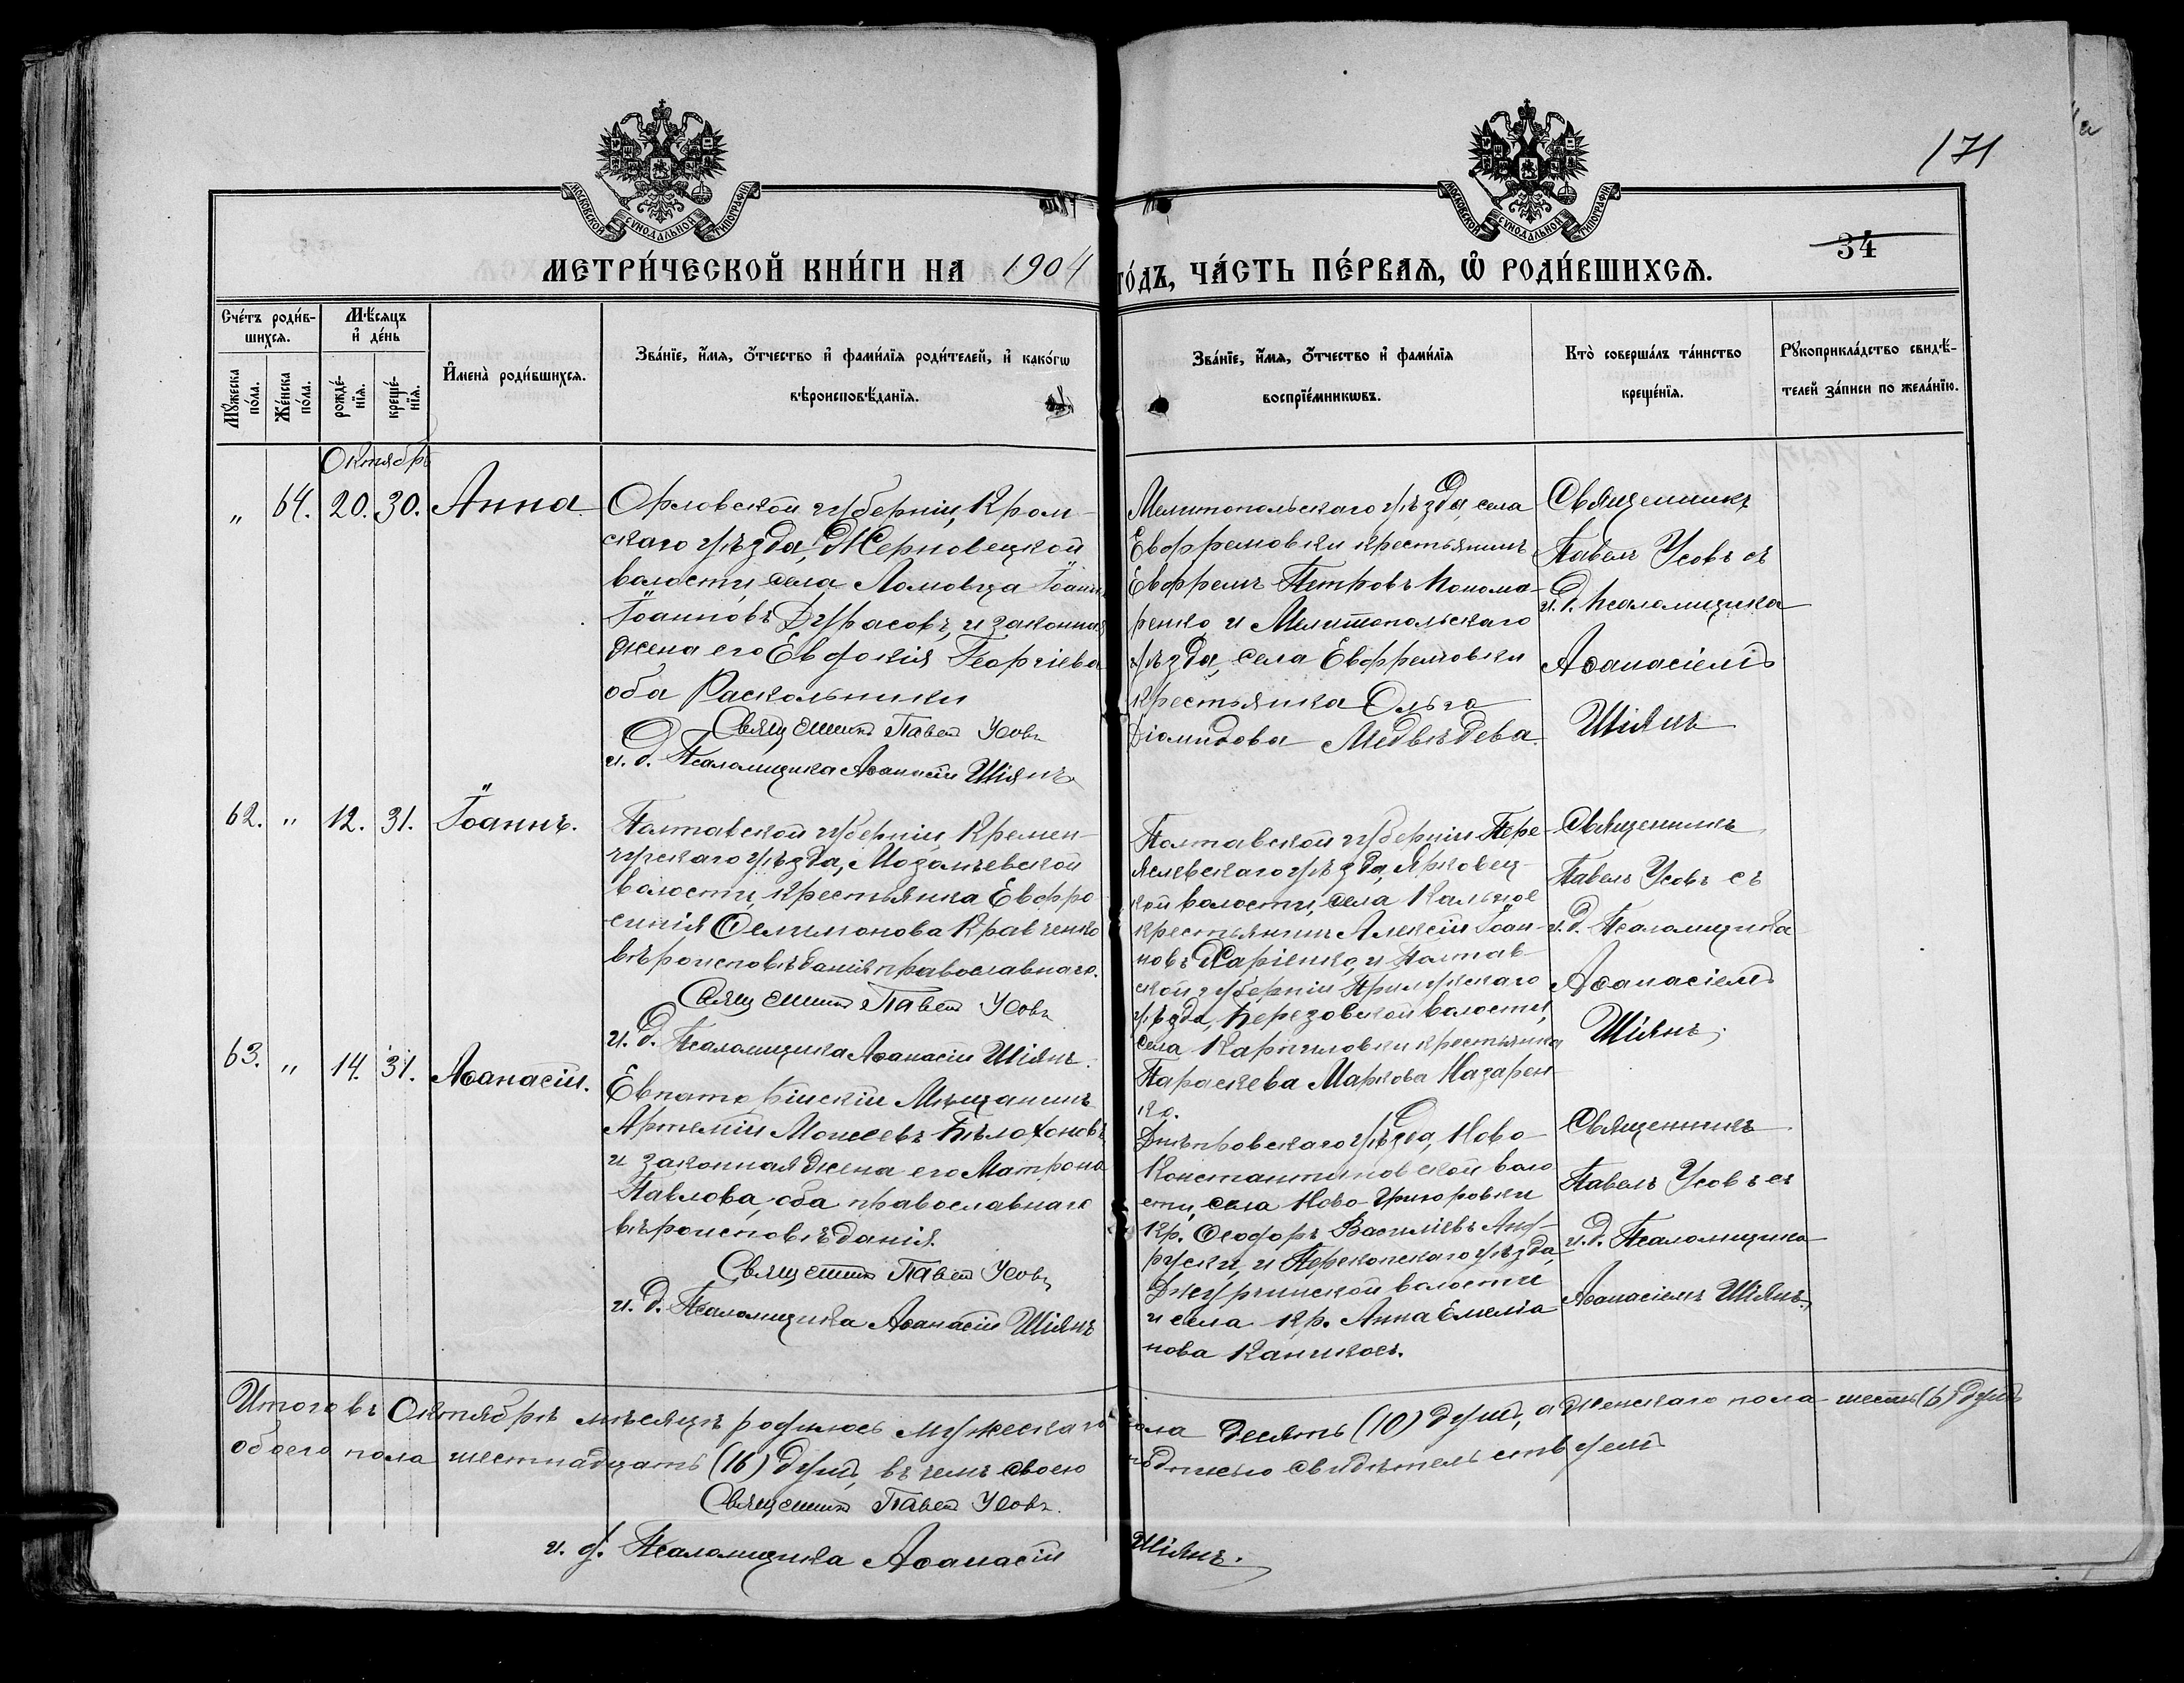 171
МОСКОВСКОЙ СУНОДАЛЬНОЙ ТИПОГРАФІИ
МОСКОВСКОЙ СУНОДАЛЬНОЙ ТИПОГРАФІИ
34
МЕТРИ́ЧЕСКОЙ КНИ́ГИ НА 1904 ГО́ДЪ, ЧА́СТЬ ПЕ́РВАѦ, Ѡ҆ РОДИ́ВШИХСѦ.
Сче́тъ роди́в-
шихсѧ.
Мѣ́сѧцъ
и҆ де́нь
Мꙋ́жеска
по́ла.
Же́нска
по́ла.
рожде́-
нїѧ.
креще́-
нїѧ.
И҆мена̀ роди́вшихсѧ.
Зва́нїе, и҆́мѧ, ѻ҆́тчество и҆ фами́лїѧ роди́телей, и҆ како́гѡ
вѣроисповѣ́данїѧ.
Зва́нїе, и҆́мѧ, ѻ҆́тчество и҆ фами́лїѧ
воспрїе́мникѡвъ.
Кто̀ соверша́лъ та́инство
креще́нїѧ.
Рꙋкоприкла́дство свидѣ́-
телей за́писи по жела́нїю.
Октябрь
„ 64. 20. 30. Анна.
Орловской губерніи, Кром-
скаго уѣзда, Жерновецкой
волости, села Ломовца Іоаннъ
Іоанновъ Дурасовъ, и законная
жена его Евдокія Георгіева
оба Раскольники
Священникъ Павелъ Усовъ
и. д. Псаломщика Аѳанасій Шіянъ
Мелитопольскаго уѣзда, села
Ефремовки крестьянинъ
Ефремъ Петровъ Понома-
ренко, и Мелитопольскаго
уѣзда, села Ефремовки
крестьянка Ольга
Діомидова Медвѣдева.
Священникъ
Павелъ Усовъ съ
и. д. псаломщика
Аѳанасіемъ
Шіянъ
62. „ 12. 31. Іоаннъ.
Полтавской губерніи, Кремен-
чугскаго уѣзда, Мозолѣевской
волости, крестьянка Евфро
синія Филимонова Кравченко
вѣроисповѣданія православнаго.
Священникъ Павелъ Усовъ
и. д. Псаломщика Аѳанасій Шіянъ.
Полтавской губерніи Пере-
яславскаго уѣзда,
кой волости, села
крестьянинъ Алексій Іоан-
новъ и Полтав-
ской губерніи Прилукскаго
уѣзда, Березовской волости,
села Карпиловки крестьянка
Параскева Маркова Назарен-
ко.
Священникъ
Павелъ Усовъ съ
и. д. Псаломщика
Аѳанасіемъ
Шіянъ,
63. „ 14. 31. Аѳанасій.
Евпаторійскій Мѣщанинъ
Артемій Моисеевъ Бѣлоконовъ
и законная жена его Матрона
Павлова, оба православнаго
вѣроисповѣданія.
Священникъ Павелъ Усовъ
и. д. Псаломщика Аѳанасій Шіянъ
Днѣпровскаго уѣзда, Ново-
Константиновской воло
сти, села Ново-Григоровки
Кр. Ѳеодоръ Васильевъ
и Перекопскаго уѣзда,
Джурчинской волости
и села Кр. Анна Емелiа
нова
Священникъ
Павелъ Усовъ съ
и. д. Псаломщика
Аѳанасіемъ Шіянъ.
Итого въ Октябрѣ мѣсяцѣ родилось мужескаго пола десять (10) душъ, а женскаго пола шесть (6) душъ
обоего пола шестнадцать (16) душъ, въ чемъ своею подписью свидѣтельствуемъ
Священникъ Павелъ Усовъ.
и. д. Псаломщика Аѳанасій Шіянъ.